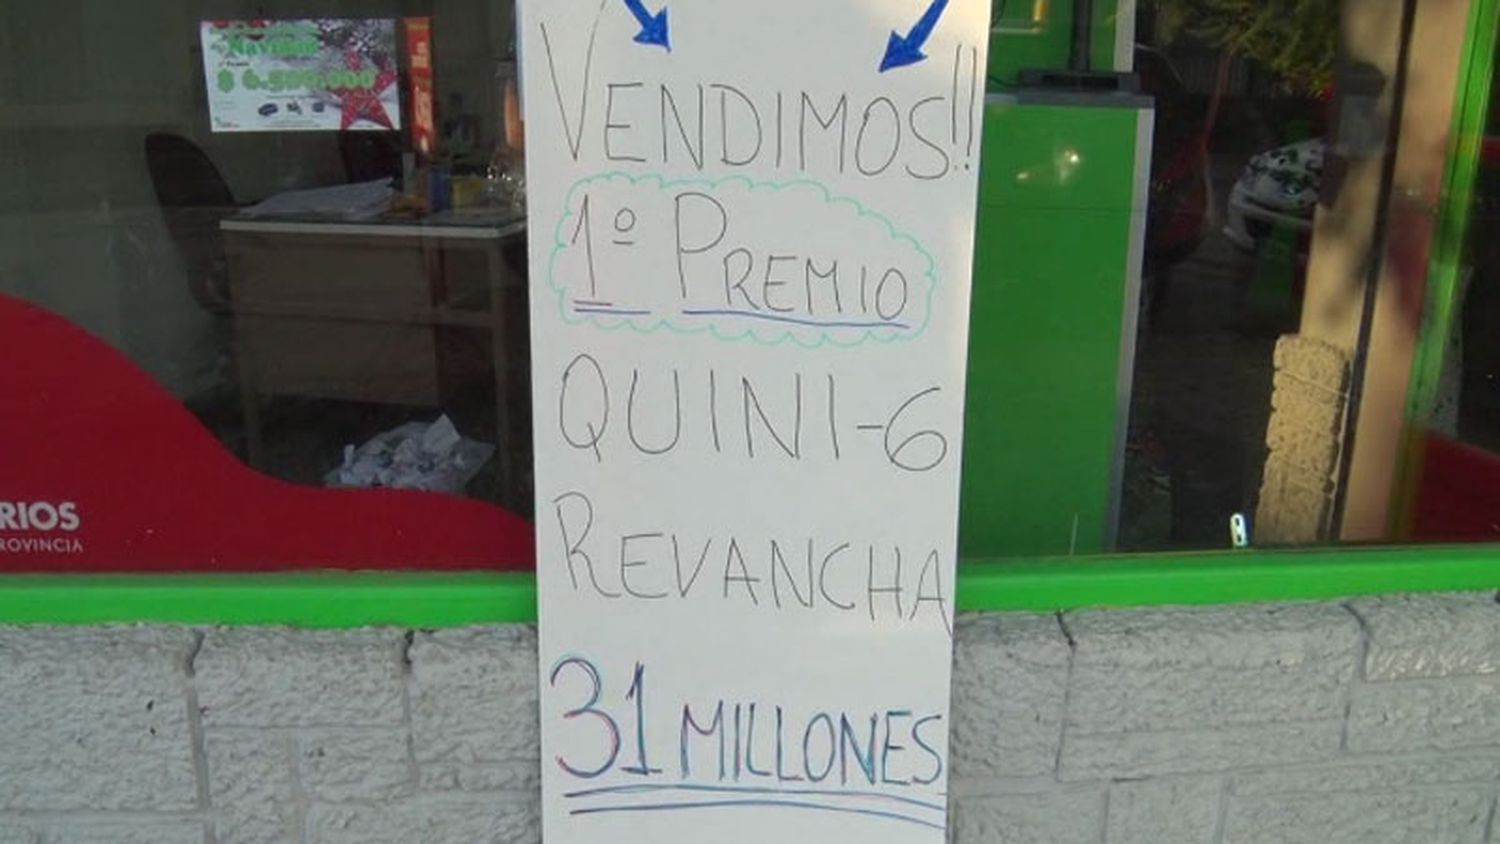 Navidad
VENDIMOS!!
1º PREMIO
QUINI-6
REVANCHA
31 MILLONES
RIOS
ROVINCIA